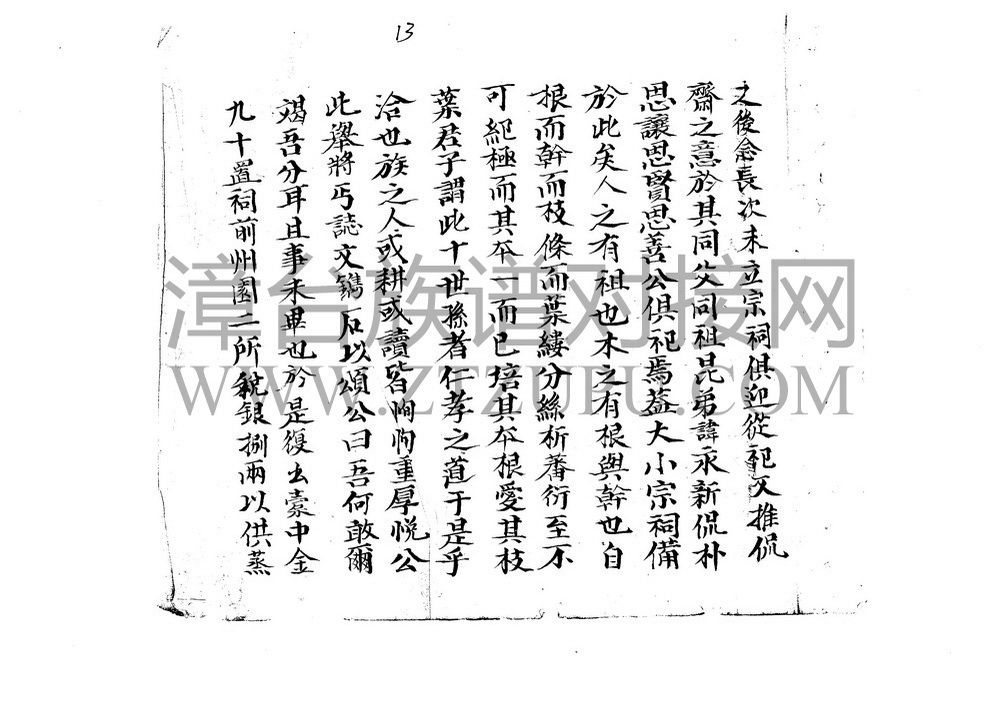 13
之後念長次未立宗祠俱迎從祀又推侃
齋之意於其同父同祖昆弟諱永新侃朴
思讓思賢思善公俱祀焉葢大小宗祠備
於此矣人之有祖也木之有根與幹也自
根而幹而枝條而葉縷分絲析蕃衍至不
可紀極而其夲一而已培其夲根愛其枝
葉君子謂此十世孫者仁孝之道于是乎
洽也族之人或耕或讀皆恂恂重厚悅公
此舉將丐誌文鐫石以頌公曰吾何敢爾
竭吾分耳且事未畢也於是復出橐中金
九十置祠前州園二所稅銀捌兩以供蒸
漳台族谱对接网
WWW.ZTZUPU.COM